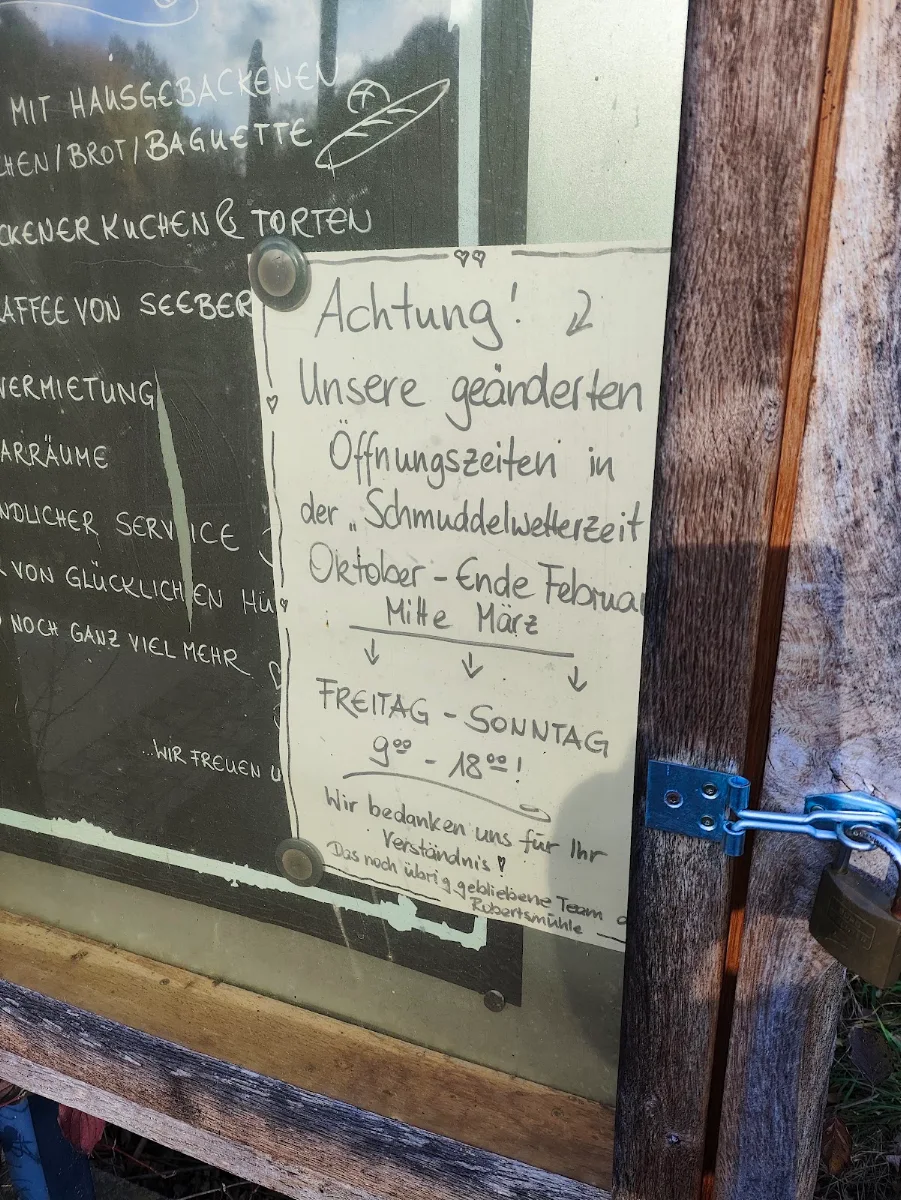 MIT HAUSGEBACKENEN
CHEN/BROT/BAGUETTE
CKENER KUCHEN & TORTEN
AFFEE VON SEEBER
VERMIETUNG
ARRÄUME
NDLICHER SERVICE
VON GLÜCKLICHEN HÜ
NOCH GANZ VIEL MEHR
...WIR FREUEN U
Achtung!
Unsere geänderten
Öffnungszeiten in
der „Schmuddelwetterzeit
Oktober - Ende Februar
Mitte März
FREITAG - SONNTAG
9⁰⁰ - 18⁰⁰!
Wir bedanken uns für Ihr
Verständnis
Das noch übrig gebliebene Team
Robertsmühle